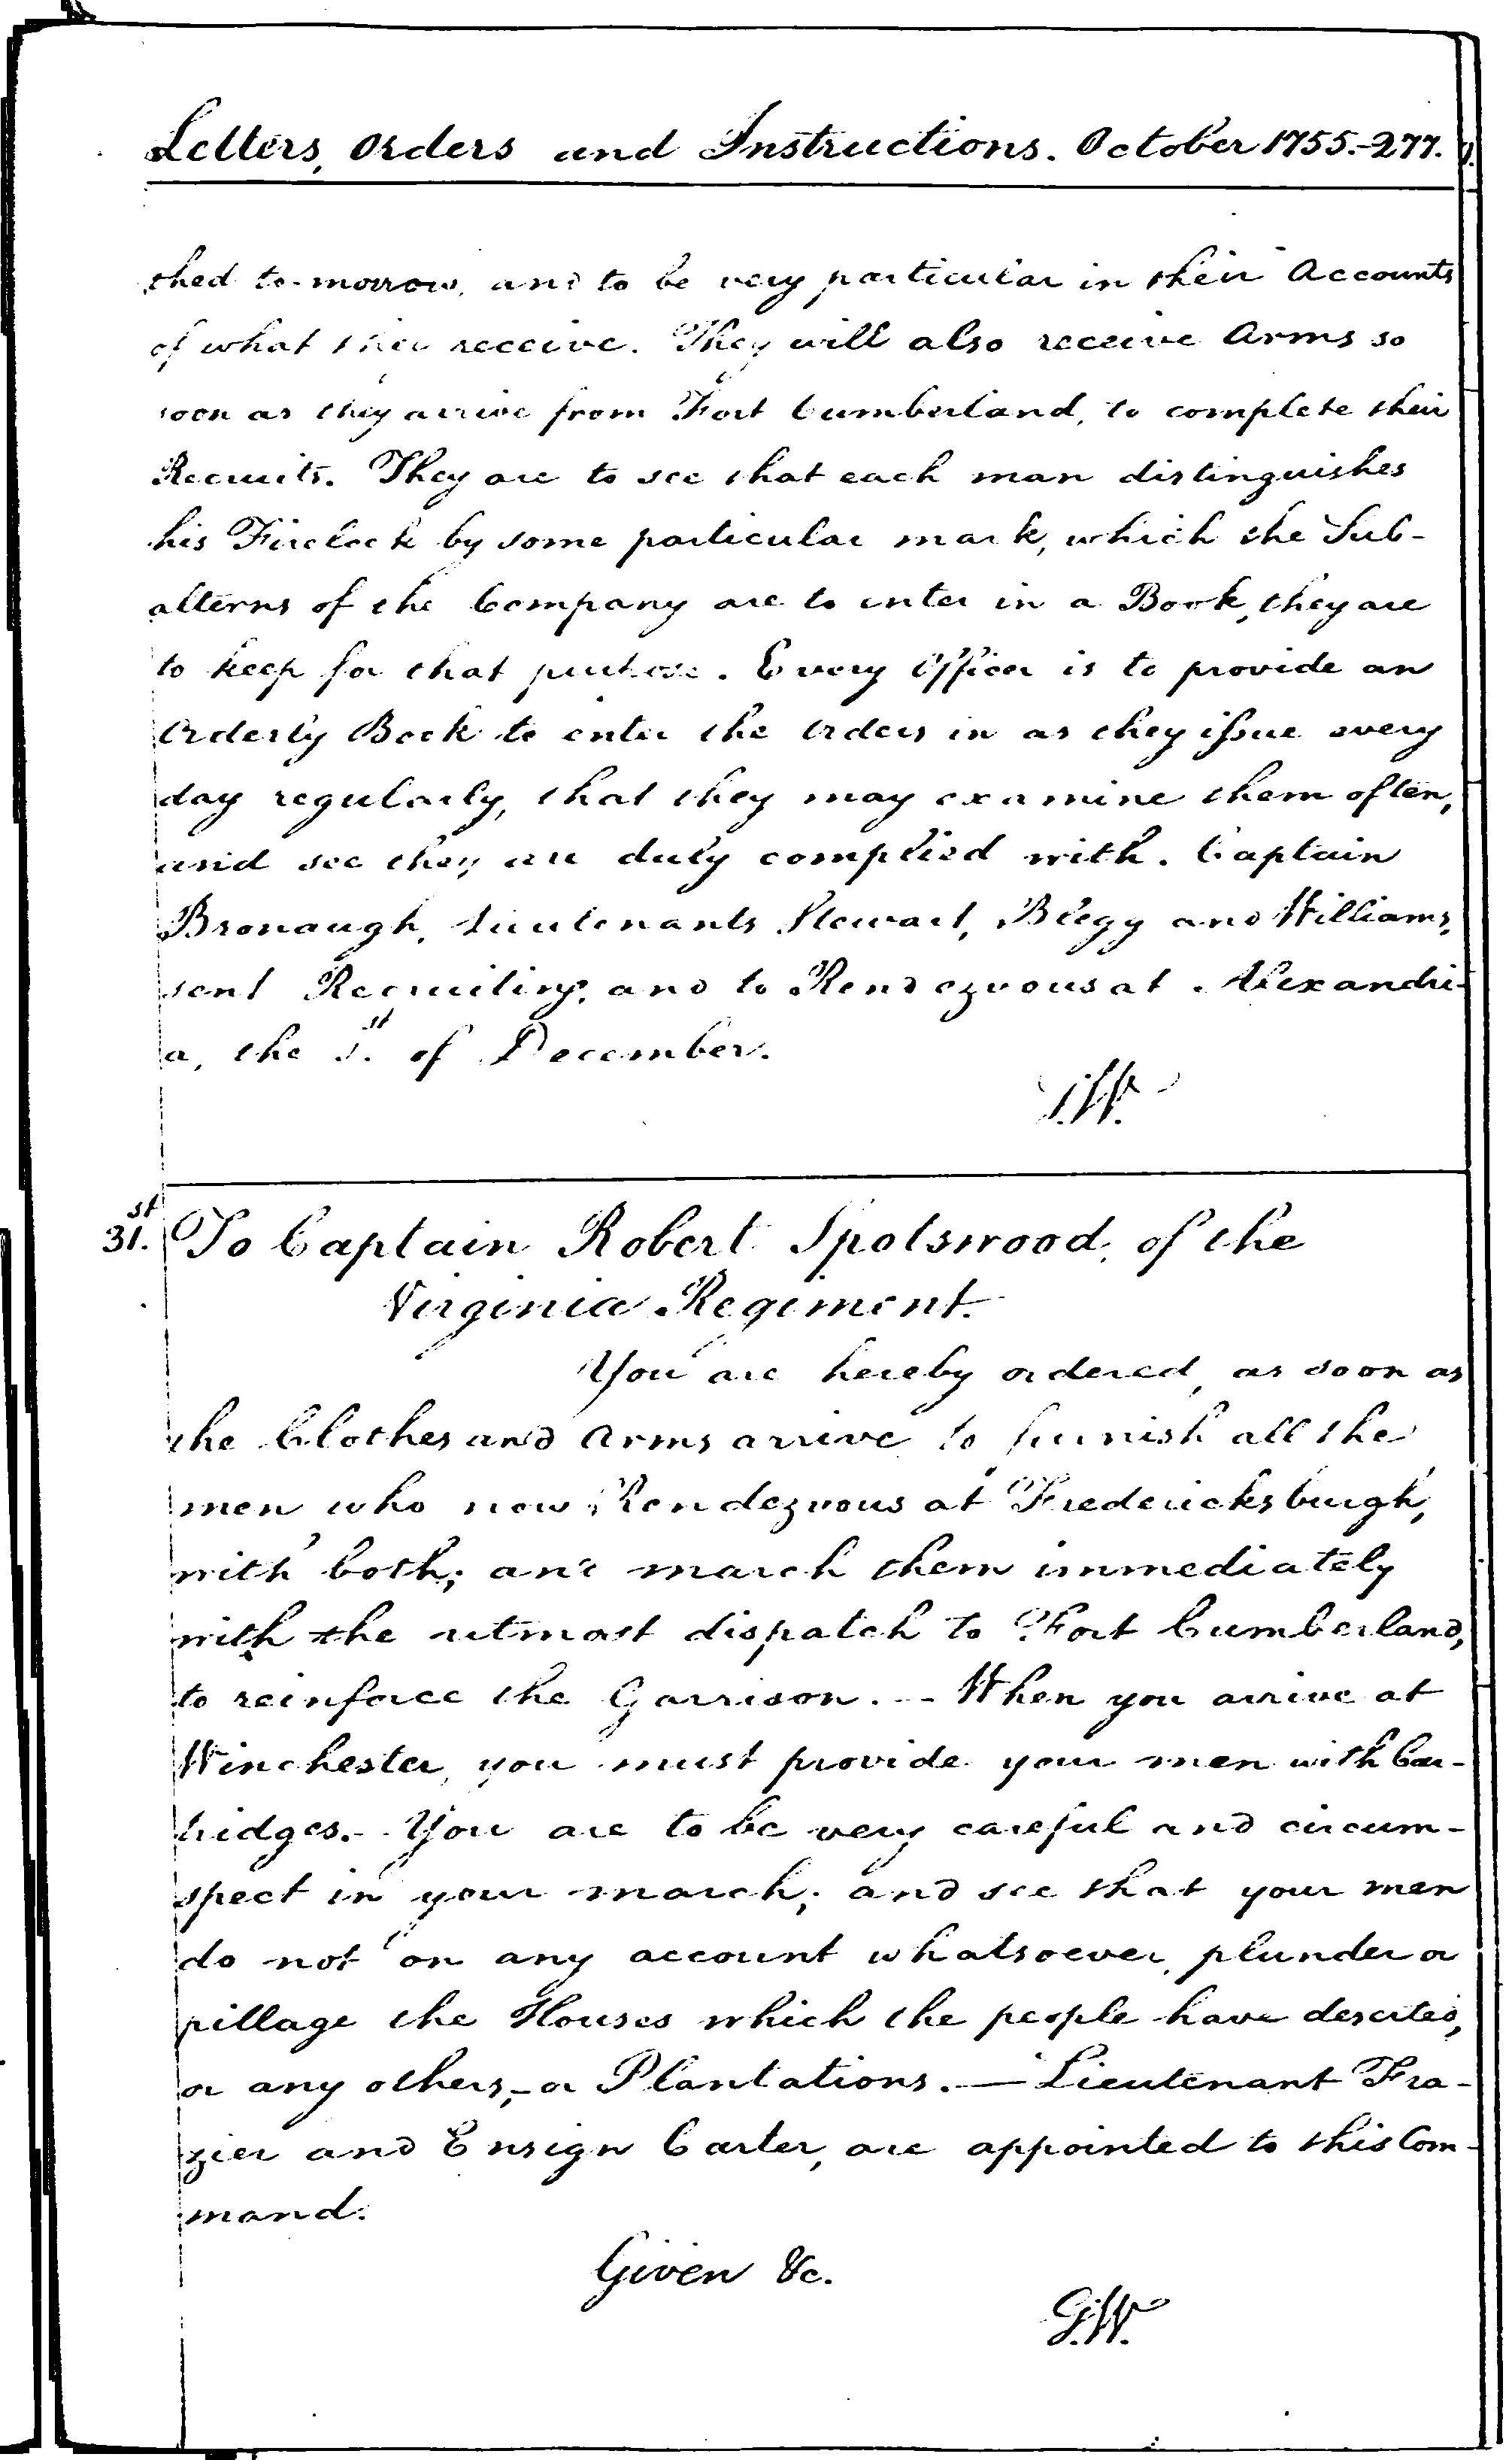 Letters, Orders and Instructions. October 1755.-277.
ched to-morrow, and to be very particular in their Accounts
of what they receive. They will also receive Arms so
soon as they arrive from Fort Cumberland, to complete their
Recruits. They are to see that each man distinguishes
his Firelock by some particular mark, which the Sub-
alterns of the Company are to enter in a Book, they are
to keep for that purpose. Every Officer is to provide an
Orderly Book to enter the Orders in as they issue every
day regularly, that they may examine them often,
and see they are duly complied with. Captain
Bronaugh, Lieutenants Stewart, Blegg and Williams,
sent Recruiting, and to Rendezvous at Alexandri-
a, the 1.st of December.
G.W.
31.st To Captain Robert Spotswood, of the
Virginia Regiment.
You are hereby ordered, as soon as
the Clothes and Arms arrive to furnish all the
men who now Rendezvous at Fredericksburgh,
with both; and march them immediately
with the utmost dispatch to Fort Cumberland,
to reinforce the Garrison. -- When you arrive at
Winchester, you must provide your men with Car-
tridges. - You are to be very careful and circum-
spect in your march; and see that your men
do not on any account whatsoever, plunder or
pillage the Houses which the people have deserted,
or any others, - or Plantations. — Lieutenant Fra-
zier and Ensign Carter, are appointed to this Com-
mand.
Given &c.
G.W.